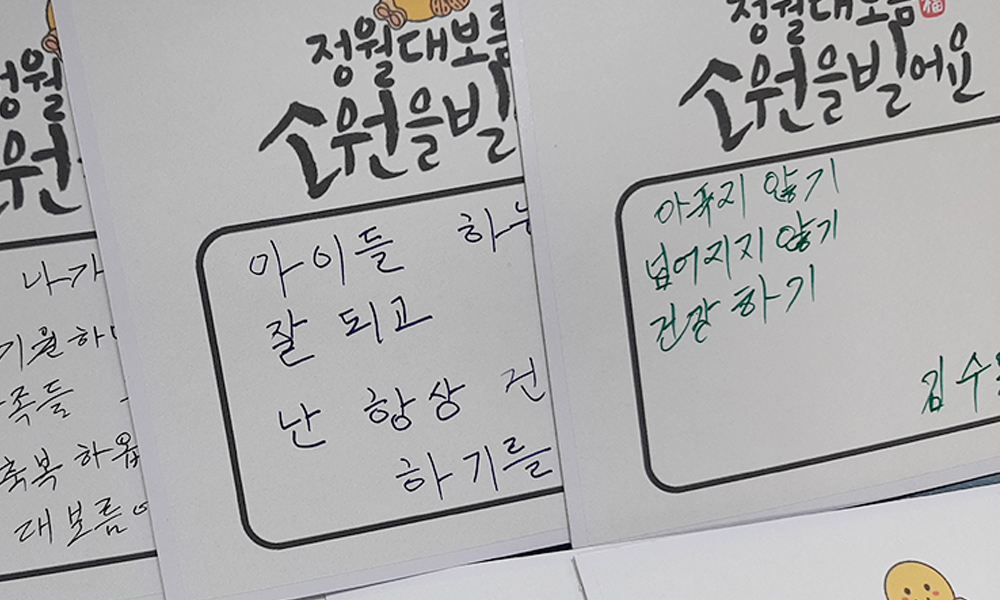 월
원
나가
기원하
족들
축복 하옵
대보름
정월대보름
소원을빌
아이들 하는
잘 되고
난 항상 건
하기를
정월대보름 福
소원을빌어요
아푸지 않기
넘어지지 않기
건강 하기
김수